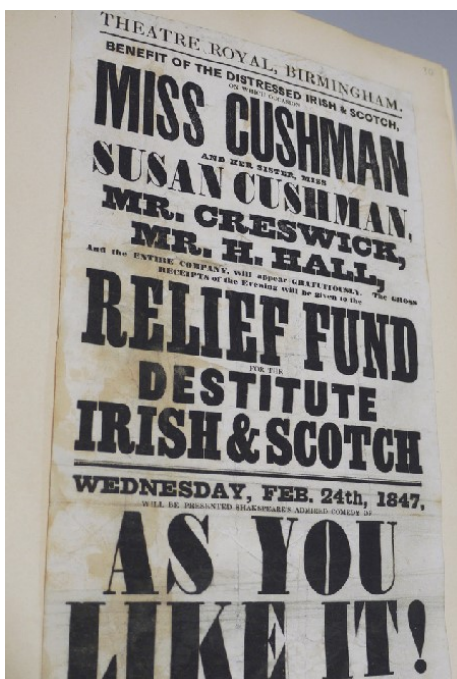 THEATRE ROYAL, BIRMINGHAM.
BENEFIT OF THE DISTRESSED IRISH & SCOTCH,
ON WHICH OCCASION
MISS CUSHMAN
AND HER SISTER, MISS
SUSAN CUSHMAN,
MR. CRESWICK,
MR. H. HALL,
And the ENTIRE COMPANY, will appear GRATUITOUSLY. The GROSS
RECEIPTS of the Evening will be given to the
RELIEF FUND
FOR THE
DESTITUTE
IRISH & SCOTCH
WEDNESDAY, FEB. 24th, 1847,
WILL BE PRESENTED SHAKSPEARE'S ADMIRED COMEDY OF
AS YOU
LIKE IT!